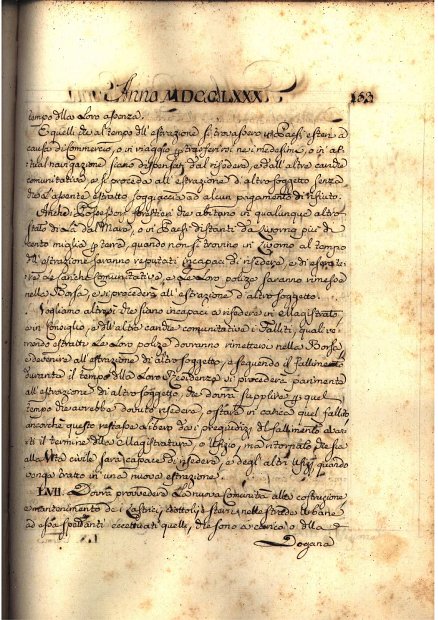 Anno MDCCLXXX 153
tempo della Loro assenza.
E quelli che al tempo dell'estrazione si trovassero in Paesi esteri a
causa di commercio, o in viaggio per trasferirsi nei medesimi, o in at-
tual navigazione siano dispensati dal risedere, e dall'altre cariche
comunitative, e si proceda all'estrazione d'altro soggetto senza
che l'assente estratto soggiaccia ad alcun pagamento di rifiuto.
Anche i Possessori forestieri che abitano in qualunque altro
stato di là dal Mare, o in Paesi distanti da Livorno più di
cento miglia per terra, quando non si trovino in Livorno al tempo
dell'estrazione saranno reputati incapaci di risedere, e di eserci-
tare Le cariche Comunitative, e Le Loro polize saranno rimesse
nella Borsa, e si procederà all'estrazione d'altro soggetto.
Vogliamo altresì che siano incapaci a risedere in Magistrato,
o in Consiglio, e dell'altre cariche comunitative i Falliti, quali ve-
nendo estratti Le Loro polize dovranno rimettersi nella Borsa
e devenire all'estrazione di altro soggetto, e seguendo il fallimento
durante il tempo della Loro Residenza si procederà parimente
all'estrazione di altro soggetto, che dovrà supplire per quel
tempo che avrebbe dovuto risedere, o stare in carica quel fallito
ancorché questo restasse Libero dai pregiudizi del fallimento avan-
ti il termine della Magistratura, o Ufizio, ma ritornato che sia
alla Vita civile sarà capace di risedere, e degli altri Ufizi, quando
venga tratto in una nuova estrazione.
LVII. Dovrà provvedere La nuova Comunità alla costruzione
e mantenimento dei Lastrici, nelle strade Urbane
ad essa spettanti eccettuati quelli, che sono a carico o della
Dogana